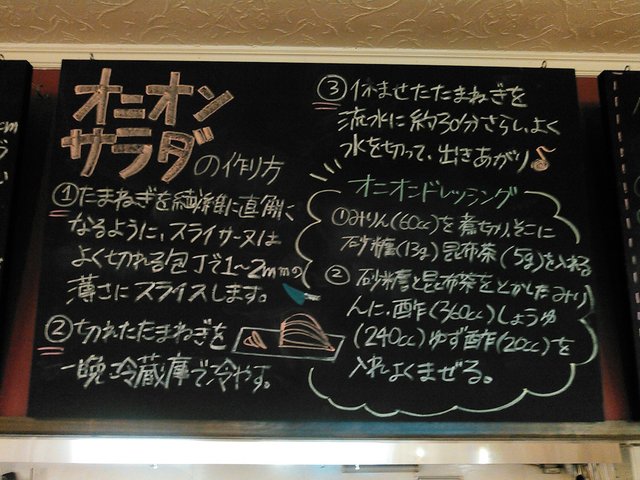 オニオン
サラダの作り方
①たまねぎを繊維に直角に
なるように、スライサー又は
よく切れる包丁で1〜2mmの
薄さにスライスします。
②切れたたまねぎを
一晩冷蔵庫で冷やす。
③休ませたたまねぎを
流水に約30分さらし、よく
水を切って、出きあがり♪
オニオンドレッシング
①みりん(60cc)を煮きり、そこに
砂糖(13g)昆布茶(5g)を入れる
②砂糖と昆布茶をとかしたみり
んに、酢(360cc)しょうゆ
(240cc)ゆず酢(20cc)を
入れよくまぜる。